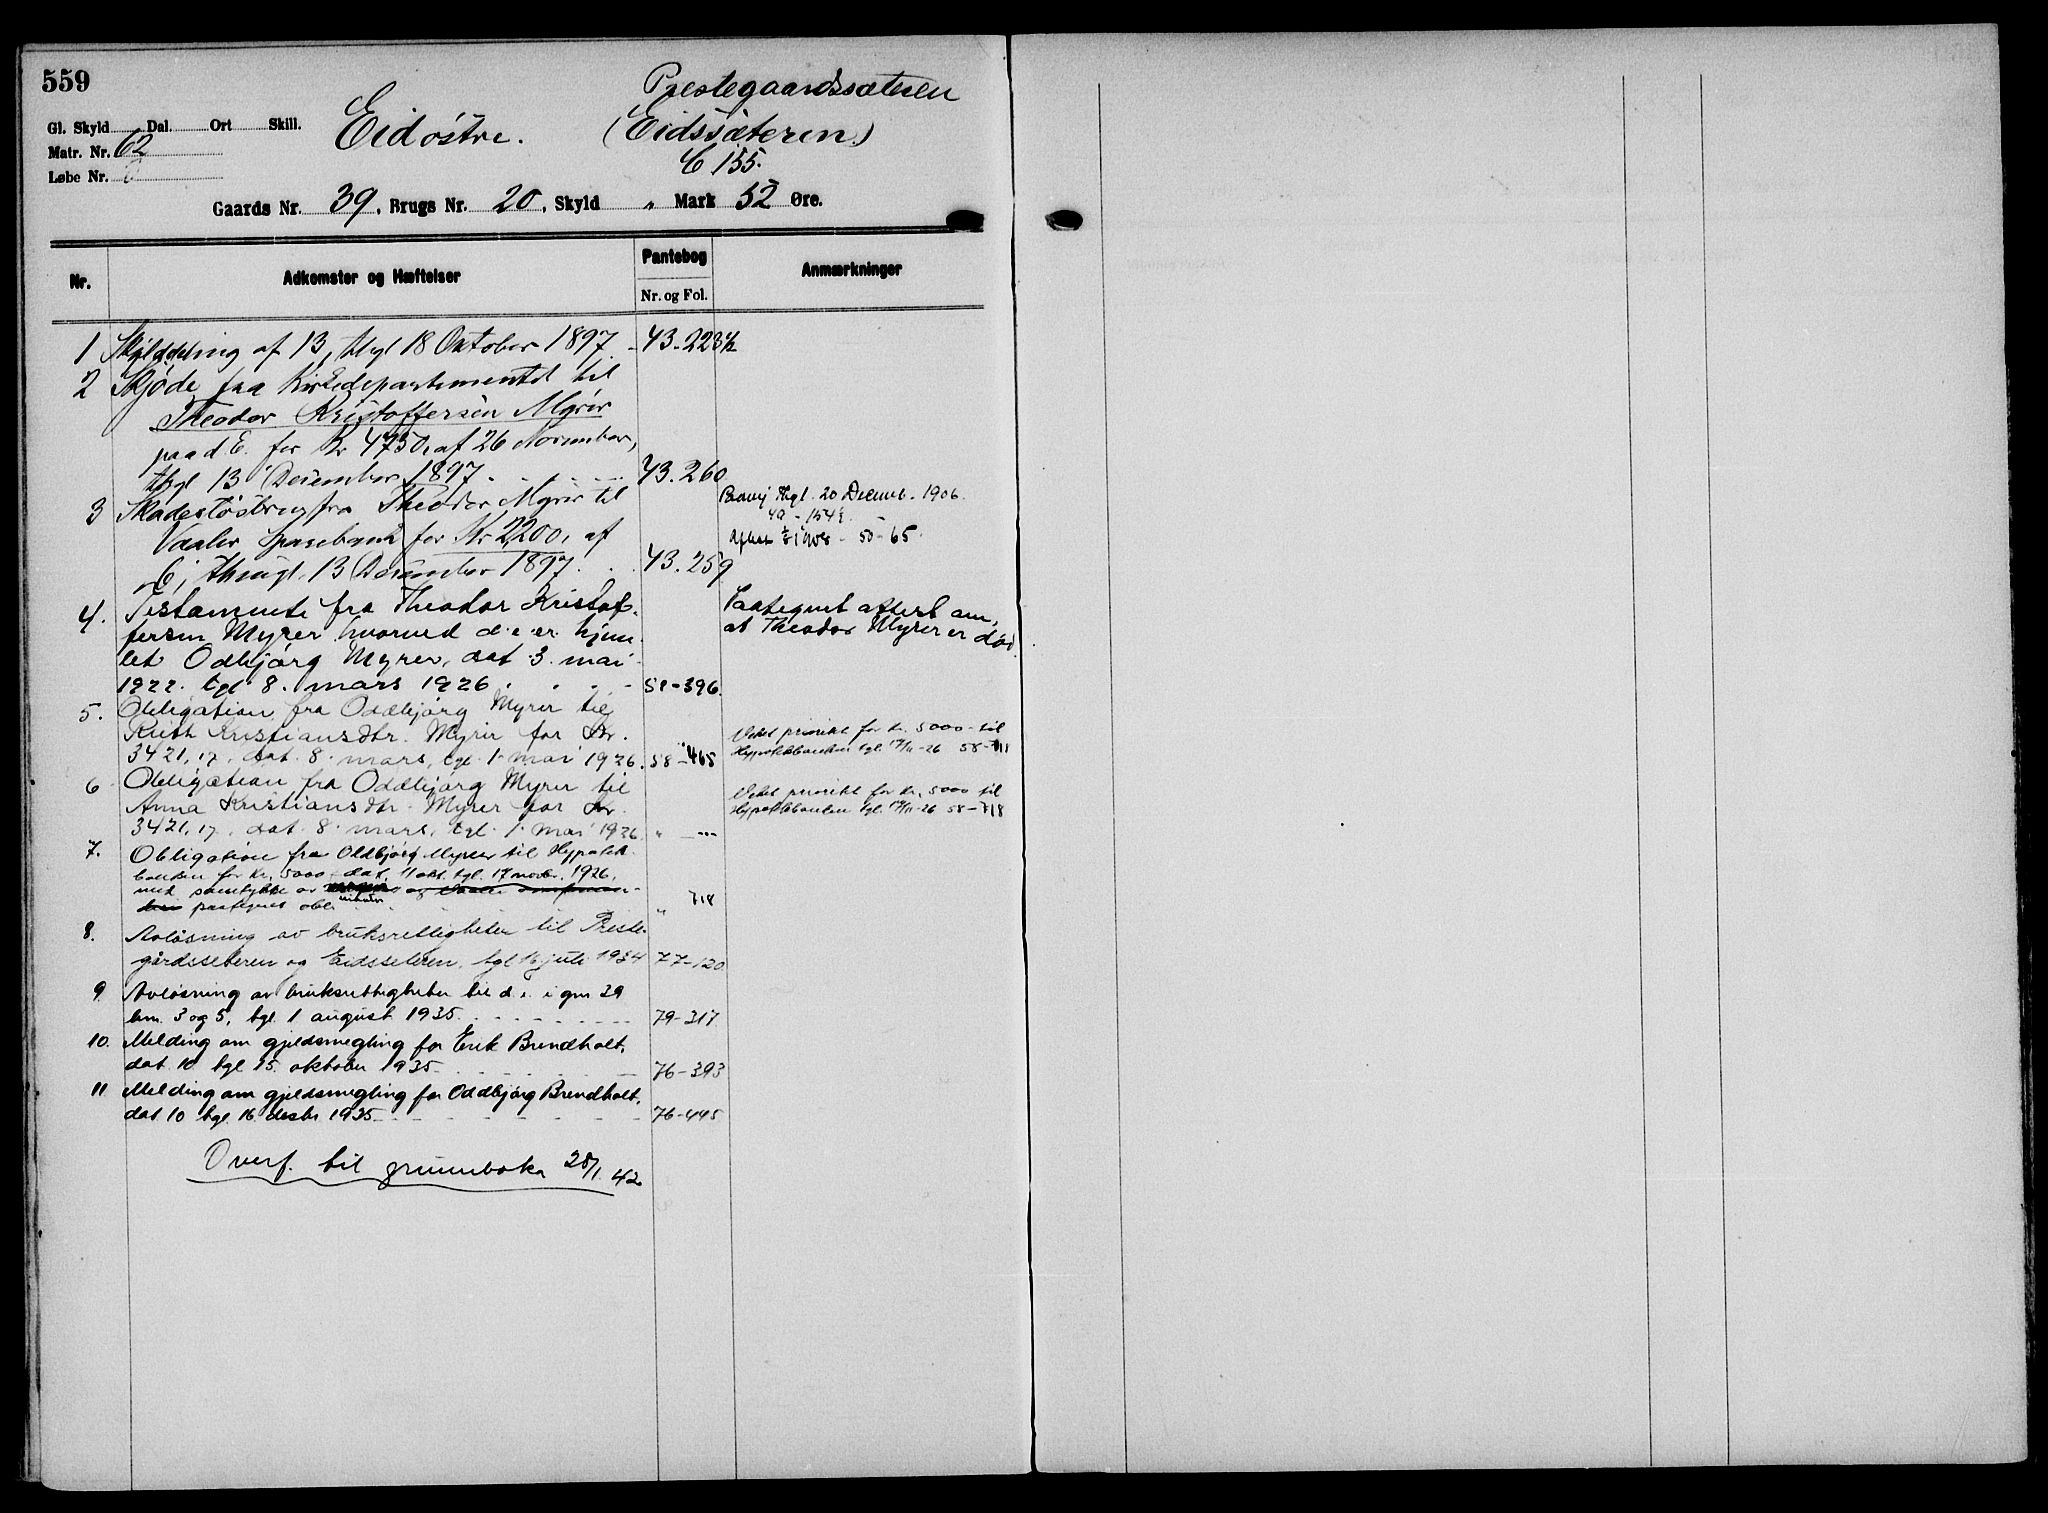 559
Prestegaardssæteren
Gl. Skyld Dal. Ort Skill.
Eid østre. (Eidssæteren)
Matr. Nr. 62
C 155.
Løbe Nr.
Gaards Nr. 39, Brugs Nr. 20, Skyld " Mark 52 Øre.
Nr. Adkomster og Hæftelser Pantebog Nr. og Fol. Anmærkninger
1 Skylddeling af 13, thgl 18 Oktober 1897. 43-223½
2 Skjøde fra Kirkedepartementet til
Theodor Kristoffersen Myrer
paa d.E. for Kr 4750, af 26 November,
thgl 13 December 1897. 43.260
3 Skadesløsbrev fra Theodor Myrer til
Vaaler Sparebank for Kr 2,200, af
6, thingl. 13 December 1897. 43.259
thgl. 20 Decemb. 1906.
49-154
1908 - 50-65.
4. Testamente fra Theodor Kristof-
fersen Myrer hvorved d.e. er hjem-
let Odbjørg Myrer, dat. 3. mai
1922. tgl 8. mars 1926. 58-396.
Paategnet attest om,
at Theodor Myrer er død.
5. Obligation fra Oddbjørg Myrer til
Ruth Kristiansdtr. Myrer for kr.
3421,17, dat. 8. mars, tgl. 1. mai 1926. 58-465
Veket prioritet for kr. 5000- til
Hypotekbanken tgl. 17/11-26 58-718
6 Obligation fra Oddbjørg Myrer til
Anna Kristiansdtr. Myrer for kr.
3421,17, dat. 8. mars, tgl. 1. mai 1926. " - "
Veket prioritet for kr. 5000 til
Hypotekbanken tgl. 17/11-26 58-718
7. Obligation fra Oddbjørg Myrer til Hypotek-
banken for kr. 5000, dat. 11 okt. tgl. 17 novbr. 1926,
med samtykke av og
paategnet obl. " 718
8. Avløsning av bruksrettigheter til Preste-
gårdsseteren og Eidsseteren, tgl 16 juli 1934 77-120
9. Avløsning av bruksrettigheter til d.e. i gnr 39
bnr. 3 og 5, tgl. 1 august 1935. 79-317
10. Melding om gjeldsmegling for Erik Brendholt,
dat. 10 tgl 15. oktober 1935 76-393
11 Melding om gjeldsmegling for Oddbjørg Brendholt,
dat. 10 tgl 16. desbr 1935 76-445
Overf. til grunnboka 28/1. 42